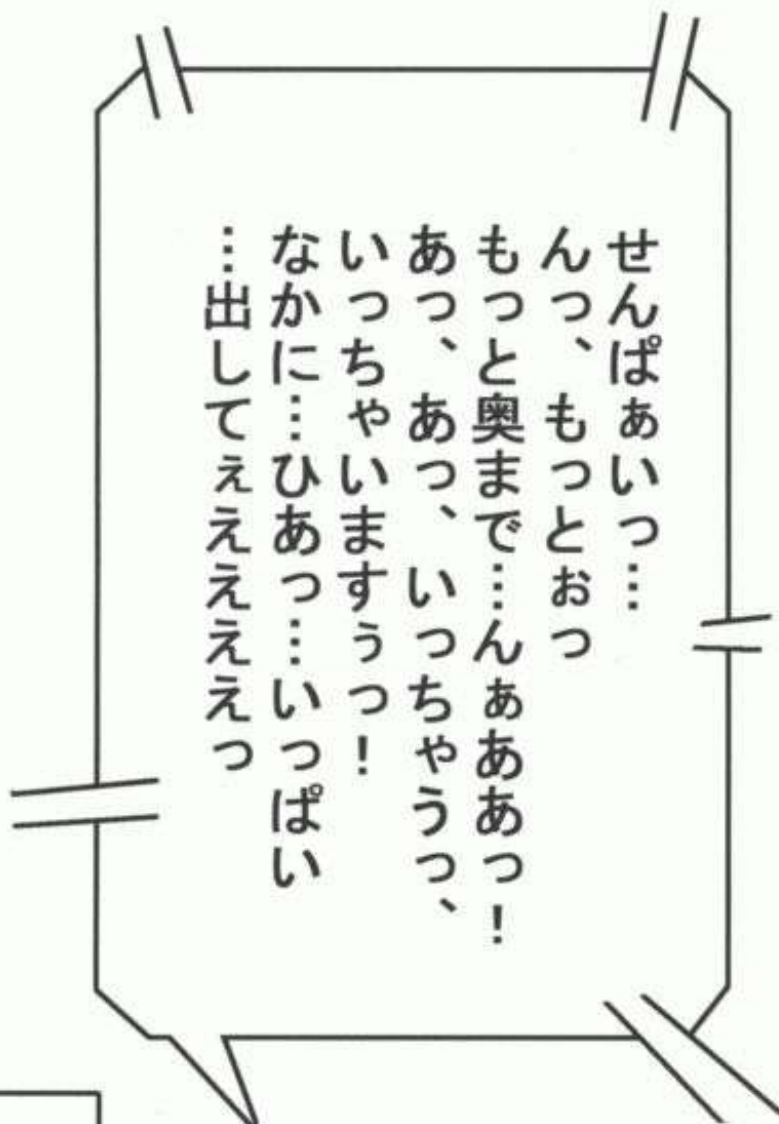 せんぱぁいっ…
んっ、もっとぉっ
もっと奥まで…んぁああっ！
あっ、あっ、いっちゃうっ、
いっちゃいますぅっ！
なかに…ひあっ…いっぱい
…出してぇええええっ